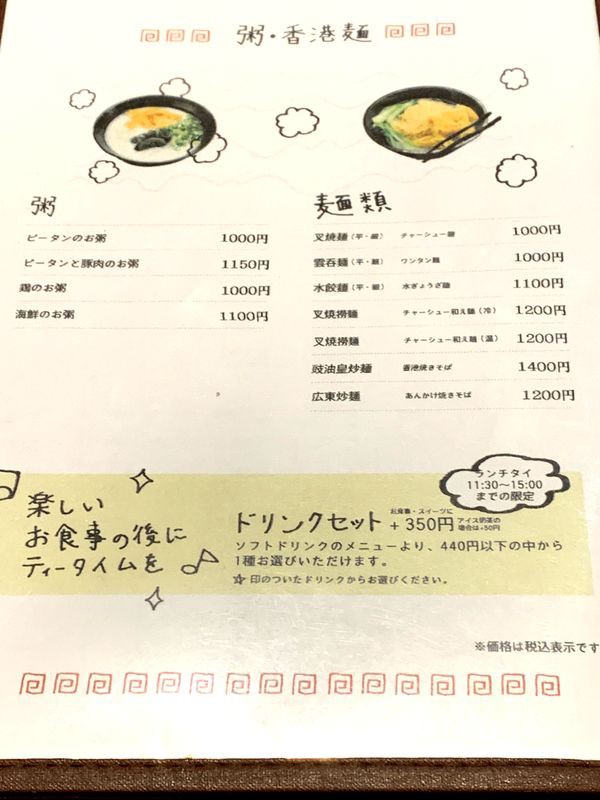 粥・香港麺
粥
ピータンのお粥 1000円
ピータンと豚肉のお粥 1150円
鶏のお粥 1000円
海鮮のお粥 1100円
麺類
叉焼麺(平・細) チャーシュー麺 1000円
雲呑麺(平・細) ワンタン麺 1000円
水餃麺(平・細) 水ぎょうざ麺 1100円
叉焼撈麺 チャーシュー和え麺(冷) 1200円
叉焼撈麺 チャーシュー和え麺(温) 1200円
豉油皇炒麺 香港焼きそば 1400円
広東炒麺 あんかけ焼きそば 1200円
ランチタイ
11:30〜15:00
までの限定
楽しい
お食事の後に
ティータイムを
ドリンクセット お食事・スイーツに +350円 アイス奶茶の場合は+50円
ソフトドリンクのメニューより、440円以下の中から
1種お選びいただけます。
☆印のついたドリンクからお選びください。
※価格は税込表示です